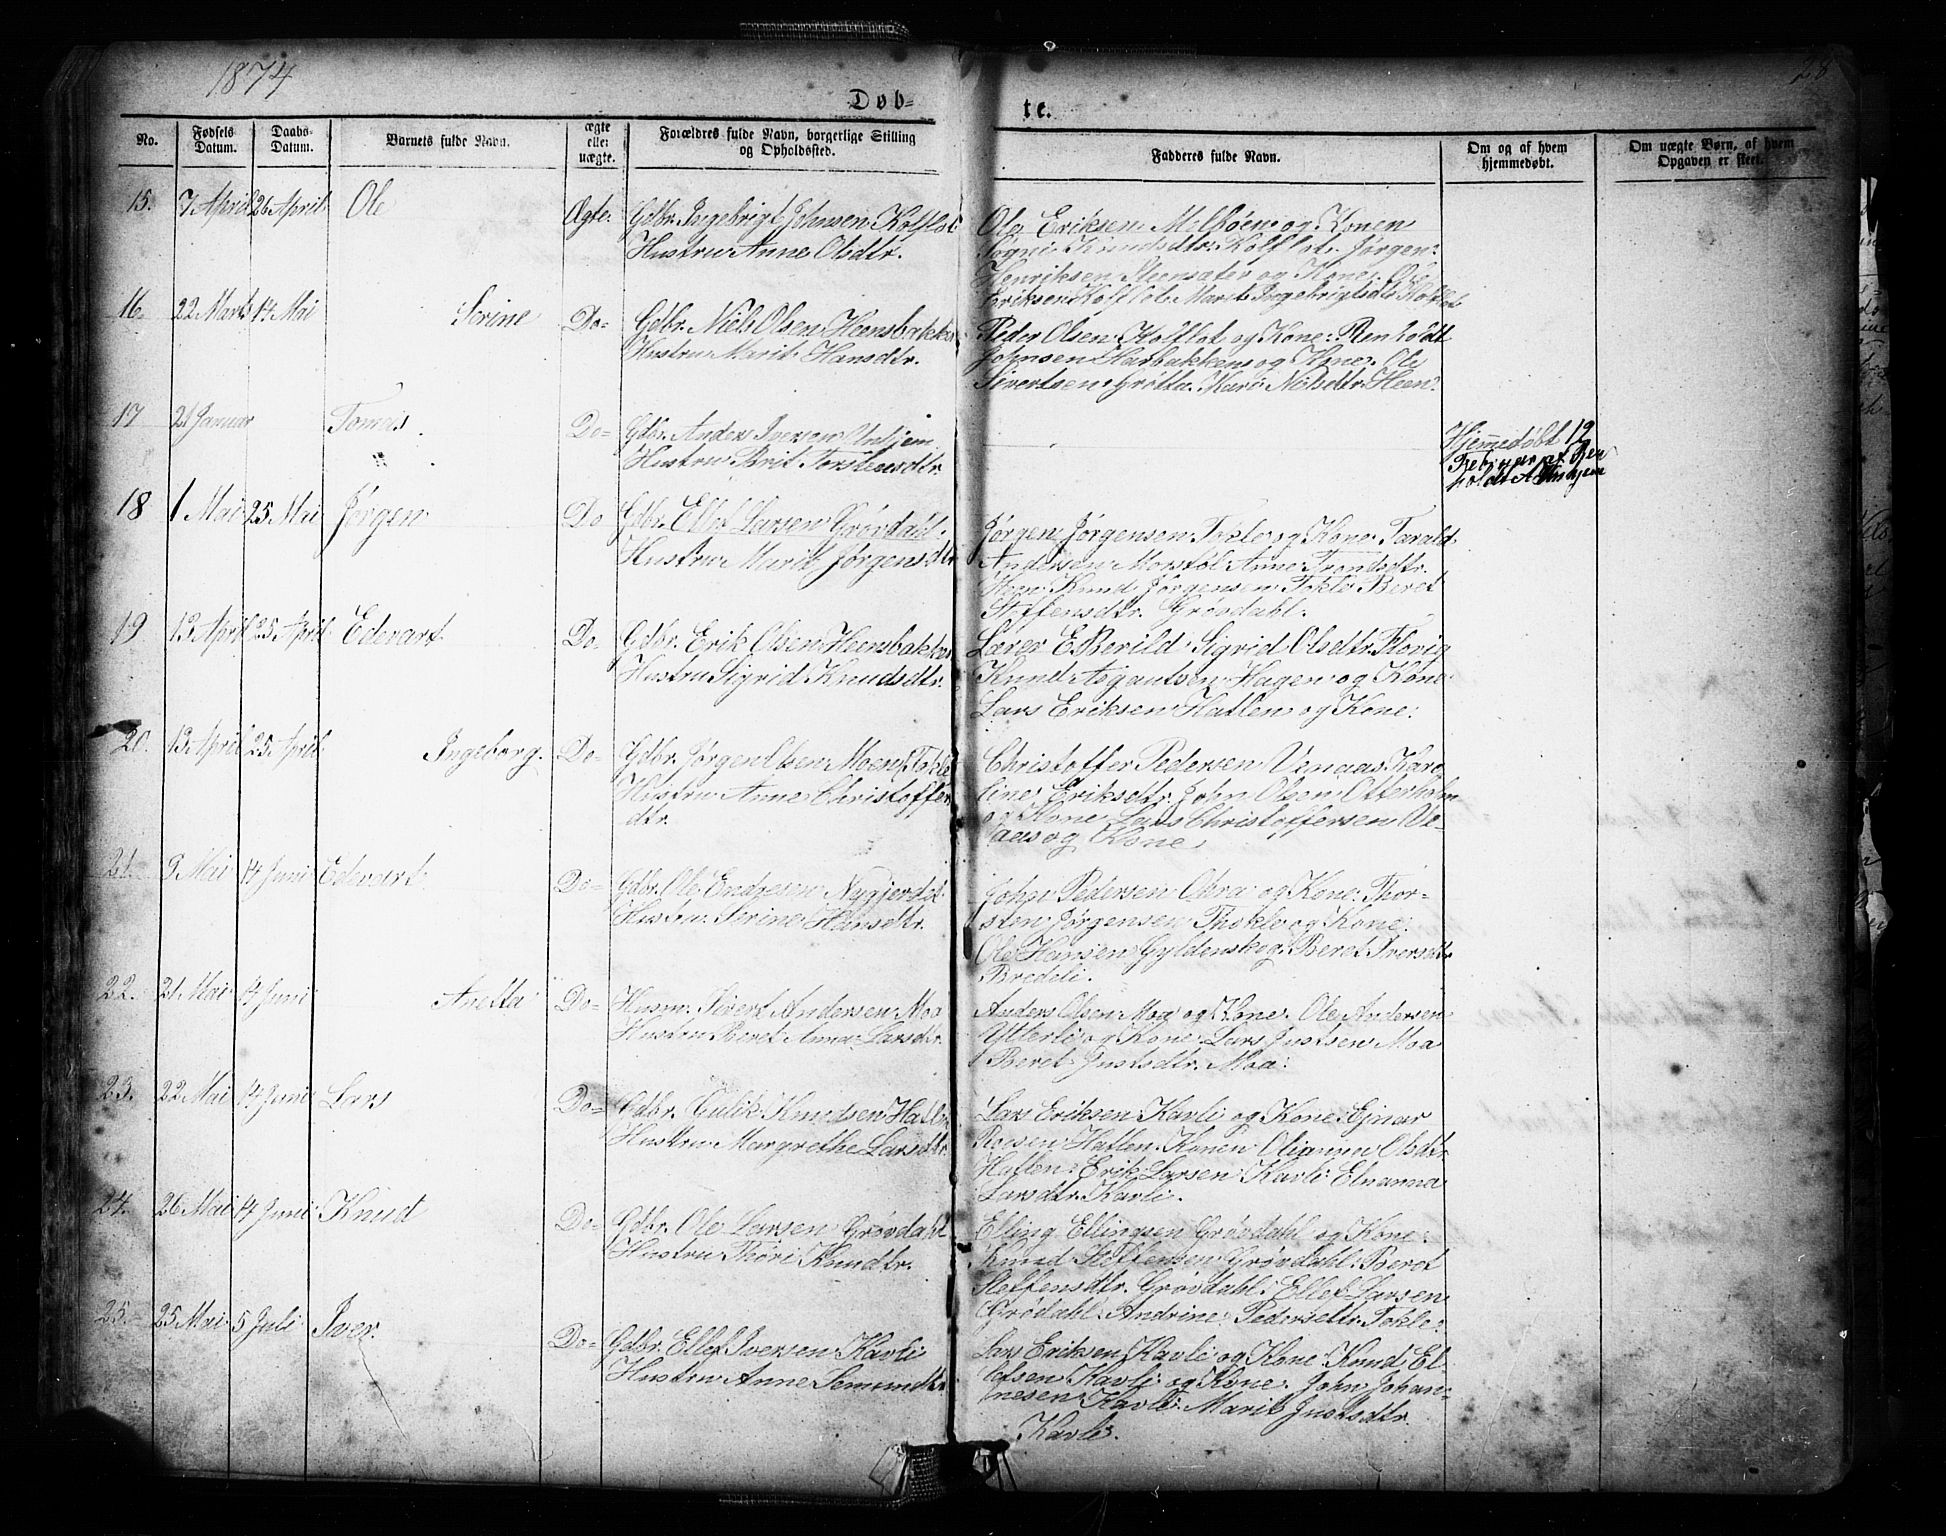 1874
28
Døb-
te.
No.
Fødsels Datum.
Daabs- Datum.
Barnets fulde Navn.
ægte eller uægte.
Forældres fulde Navn, borgerlige Stilling og Opholdssted.
Fadderes fulde Navn.
Om og af hvem hjemmedøbt.
Om uægte Børn, af hvem Opgaven er skeet.
15. 7 April 26 April. Ole Ægte. Gdbr. Ingebrigt Johnsen Kolflot
Hustru Anne Olsdtr.
Ole Eriksen Melbøen og Konen
Kolflot. Jørgen
Henriksen Steensæter og Kone. Ole
Eriksen Kolflot. Marit Ingebrigtsdtr Kolflot
16. 22 Marts 14 Mai Serine Do- Gdbr. Niels Olsen Heensbakken
Hustru Marit Hansdtr.
Peder Olsen Kolflot og Kone: Renholdt
Johnsen Haubakkens og Kone. Ole
Sivertsen Grötta. Kari Nielsdtr Heen.
17 21 Januar Tomas. Do- Gdbr. Anders Iversen Unhjem
Hustru Brit Torstensdtr.
Hjemmedøbt 12
Februar af Ren
holdt A Unhjem
18 1 Mai 25 Mai Jørgen Do Gdbr. Ellef Larsen Grövdahl.
Hustru Marit Jørgensdtr
Jørgen Jørgensen Tokle og Kone. Tarald
Andersen Morstøl Anne Trondsdtr.
Heen Knud Jørgensen Tokle Beret
Steffensdtr. Grövdahl.
19 13 April 25 April Edevart Do- Gdbr. Erik Olsen Heensbakken
Hustru Sigrid Knudsdtr.
Lærer E Berild Sigrid Olsdtr. Flovig
Knud Asgautsen Hagen og Kone
Lars Eriksen Hatlen og Kone.
20. 13 April 25 April. Ingeborg. Do- Gdbr. Jørgen Olsen Moen Tokle
Hustru Anne Christoffer
dtr.
Christoffer Pedersen Venaas Karo
line Eriksdtr. John Olsen Otterholm
og Kone Lars Christoffersen Ve-
naas og Kone.
21. 9 Mai 14 Juni Edevart Do- Gdbr. Ole Endresen Nygjerdet
Hustru Sirine Hansdtr.
John Pedersen og Kone. Thor-
sten Jørgensen Thokle og Kone.
Ole Hansen Gyldenskog. Beret Iversdtr
Bredeli.
22. 21 Mai 14 Juni Anetta Do- Husm. Sivert Andersen Moa
Hustru Beret Anna Larsdtr.
Anders Olsen Moa og Kone. Ole Andersen
Ytterli og Kone Lars Justsen Moa
Beret Justsdtr. Moa.
23. 22 Mai 14 Juni Lars Do- Gdbr. Gulik Knudsen Hatlen
Hustru Margrethe Larsdtr.
Lars Eriksen Kavli og Kone. Ejnar
Roesen Hatlen. Konen Olianna Olsdtr
Hatlen. Erik Larsen Kavli Elnanna
Larsdtr. Kavli.
24. 26 Mai 14 Juni Knud Do- Gdbr. Ole Larsen Grövdahl
Hustru Thöri Knudtr.
Elling Ellingsen Grövdahl og Kone.
Knud Steffensen Grövdahl. Beret
Steffensdtr. Grövdahl. Ellef Larsen
Grödahl. Andrine Pedersdtr. Tokle.
25. 25 Mai 5 Juli Iver. Do- Gdbr. Ellef Iversen Kavli
Hustru Anne Semundtr
Lars Eriksen Kavli og Kone. Knud El-
lefsen Kavli og Kone. John Johan-
nesen Kavli. Marit Justsdtr.
Kavli.